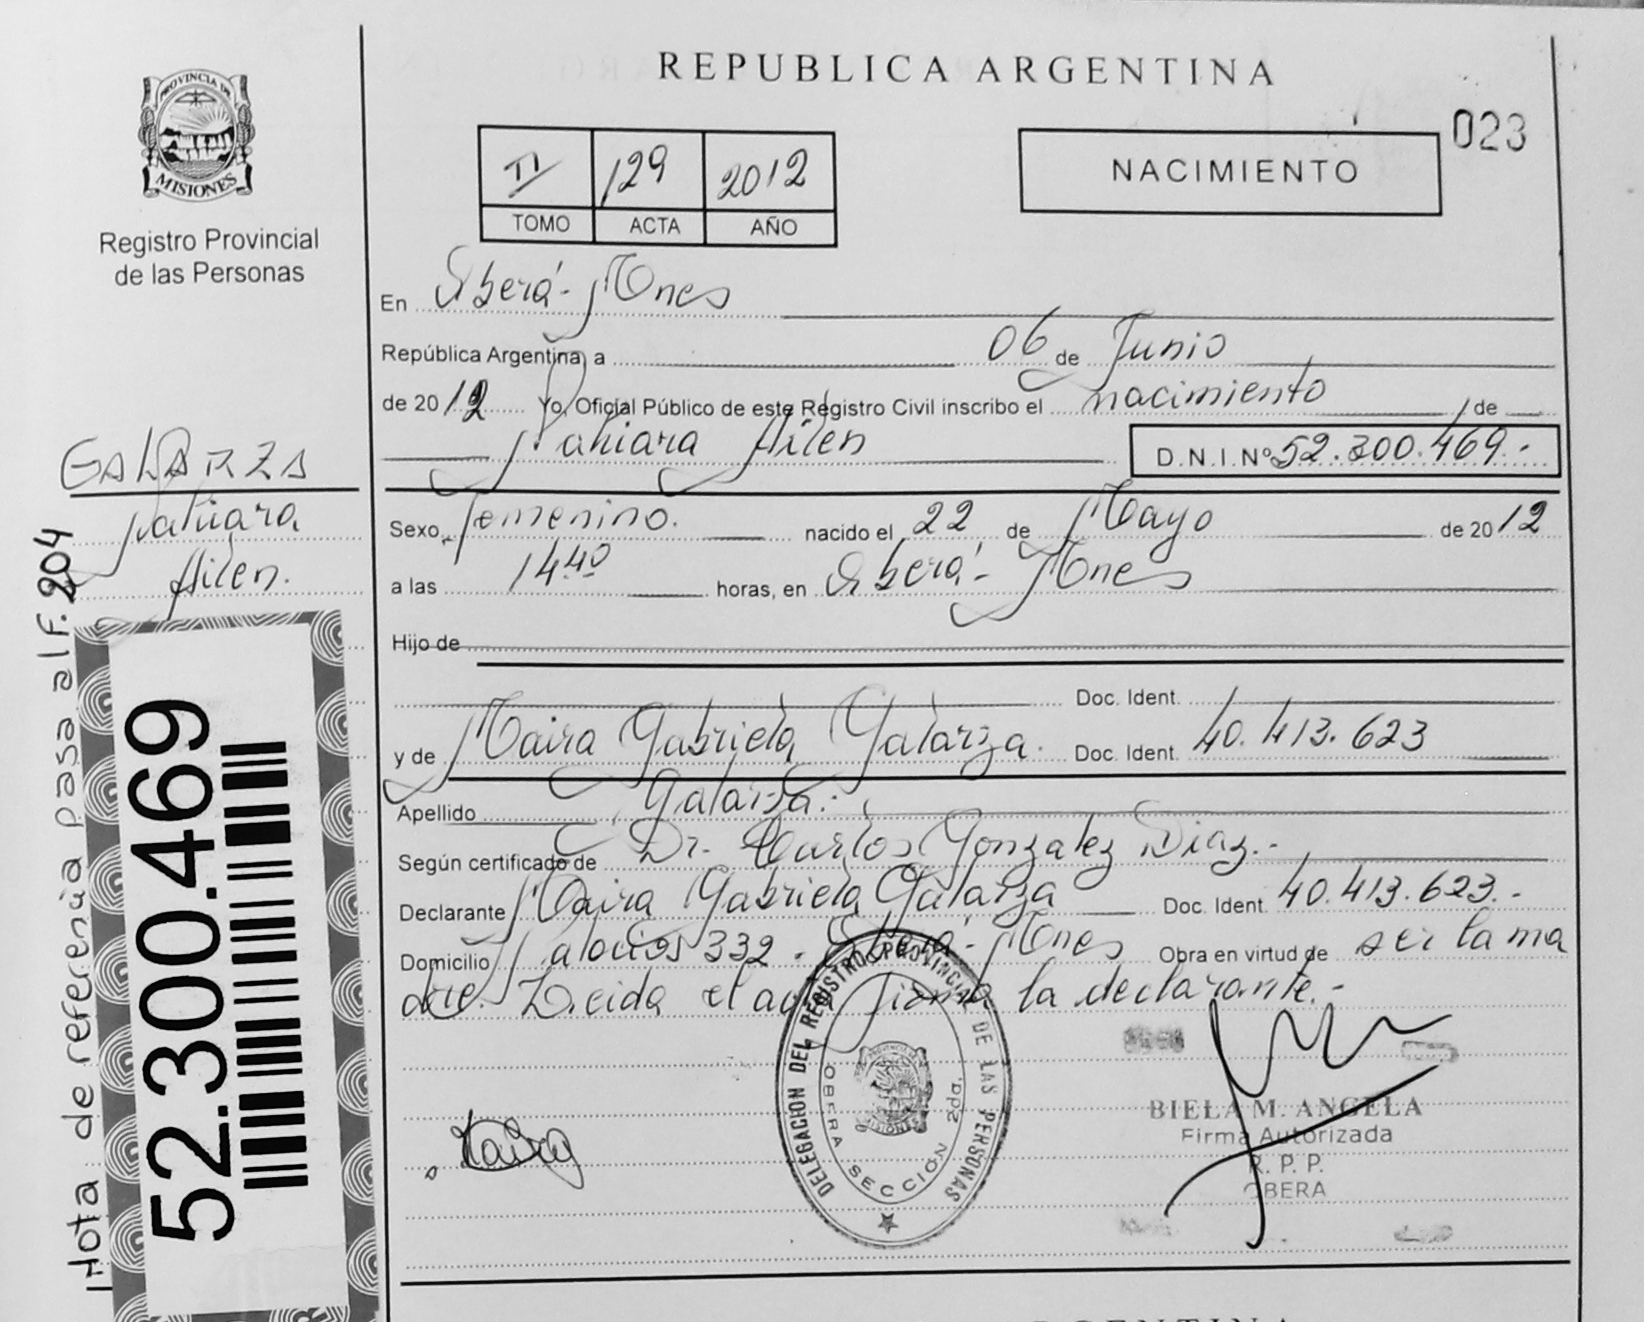 REPUBLICA ARGENTINA
PROVINCIA DE
MISIONES
Registro Provincial
de las Personas
129 2012
TOMO ACTA AÑO
NACIMIENTO
023
En Oberá - Mnes
República Argentina, a 06 de Junio
de 2012 Yo, Oficial Público de este Registro Civil inscribo el nacimiento de
Aílen
D.N.I.Nº 52.300.469.-
GALARZA
Aílen.
Nota de referencia pasa al F. 204
52.300.469
Sexo, femenino. nacido el 22 de Mayo de 2012
a las 14:40 horas, en Oberá - Mnes
Hijo de
Doc. Ident.
y de Maira Gabriela Galarza. Doc. Ident. 40.413.623
Apellido Galarza.-
Según certificado de Dr. Carlos Gonzalez Diaz.-
Declarante Maira Gabriela Galarza Doc. Ident. 40.413.623.-
Domicilio 332. Oberá - Mnes Obra en virtud de ser la ma
dre. Leida el acta firma la declarante.-
Maira
DELEGACION DEL REGISTRO PROVINCIAL DE LAS PERSONAS
OBERA SECCIÓN 2da.
MISIONES
BIELA M. ANGELA
Firma Autorizada
R. P. P.
OBERA
ARGENTINA